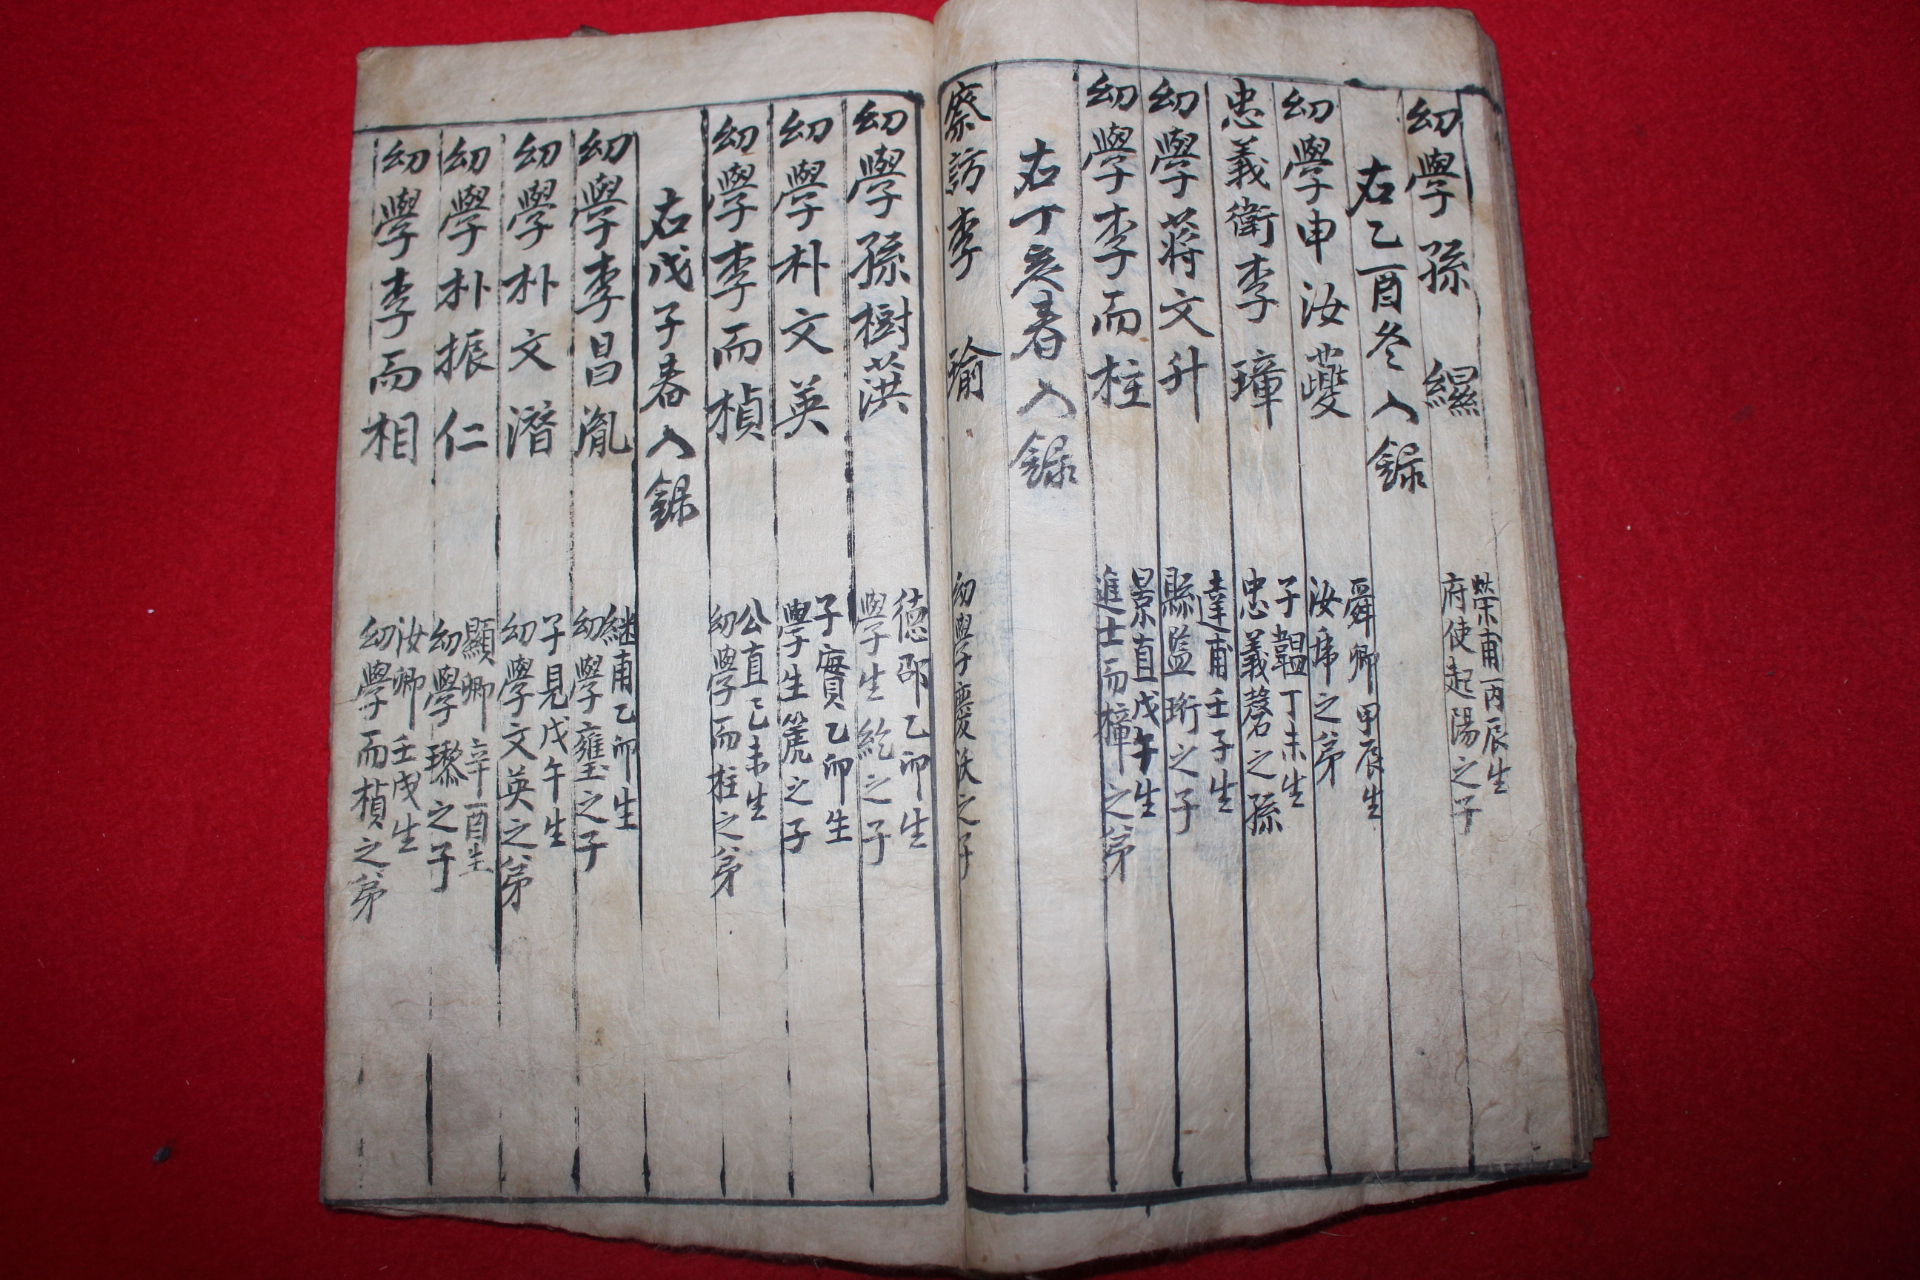 幼學孫 繉 榮甫丙辰生
府使起陽之子
右乙酉冬入錄
幼學申汝䕫 舜卿甲辰生
汝 之弟
忠義衛李 璋 子韞丁未生
忠義磬之孫
幼學蔣文升 達甫壬子生
縣監珩之子
幼學李而柱 景直戊午生
進士而樟之弟
右丁亥春入錄
察訪李 瑜 幼學慶 之子
幼學孫樹葓 德邵乙卯生
學生紇之子
幼學朴文英 子實乙卯生
學生箎之子
幼學李而楨 公直己未生
幼學而柱之弟
右戊子春入錄
幼學李昌胤 継甫乙卯生
幼學壅之子
幼學朴文潛 子見戊午生
幼學文英之弟
幼學朴振仁 顯卿辛酉生
幼學瑺之子
幼學李而相 汝卿壬戌生
幼學而楨之弟